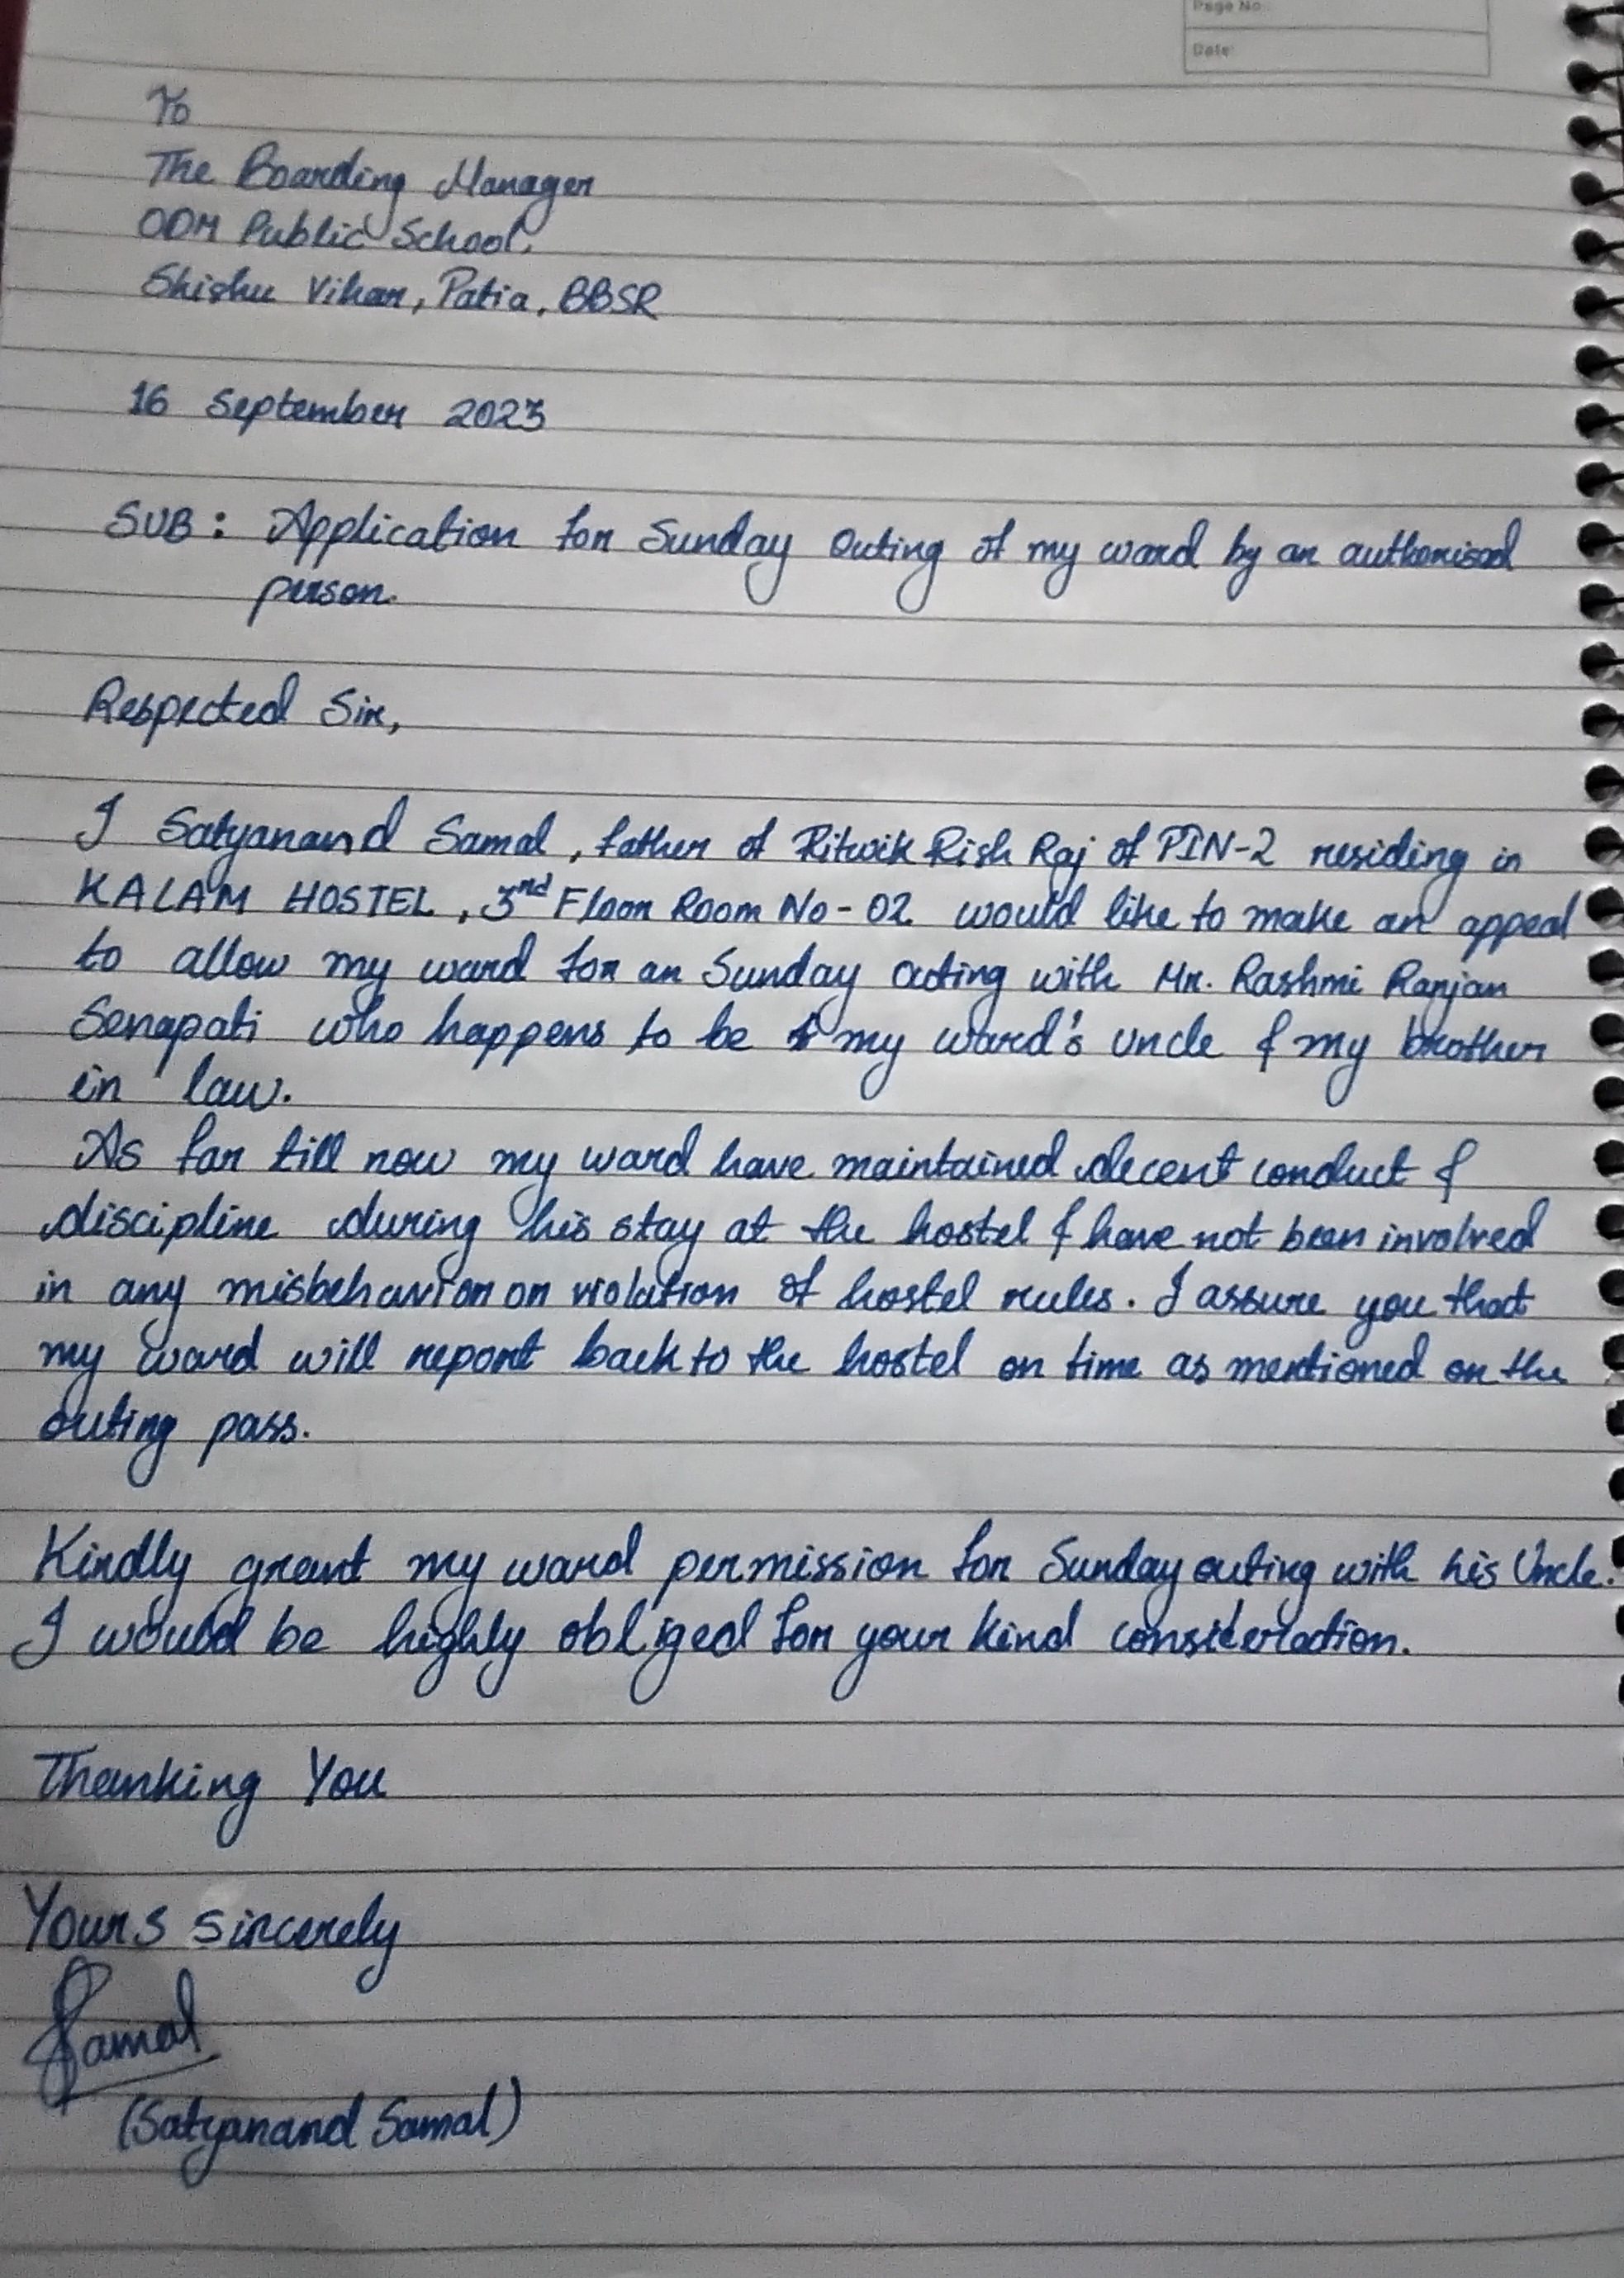 Page No:
Date:
To
The Boarding Manager
ODM Public School,
Shishu Vihar, Patia, BBSR
16 September 2023
SUB: Application for Sunday Outing of my ward by an authorised
person.
Respected Sir,
I Satyanand Samal, father of Ritwik Rish Raj of PIN-2 residing in
KALAM HOSTEL, 3nd Floor Room No-02 would like to make an appeal
to allow my ward for an Sunday outing with Mr. Rashmi Ranjan
Senapati who happens to be my ward's uncle & my brother
in law.
As far till now my ward have maintained decent conduct &
discipline during his stay at the hostel & have not been involved
in any misbehavior or violation of hostel rules. I assure you that
my ward will report back to the hostel on time as mentioned on the
outing pass.
Kindly grant my ward permission for Sunday outing with his Uncle.
I would be highly obliged for your kind consideration.
Thanking You
Yours sincerely
Samal
(Satyanand Samal)